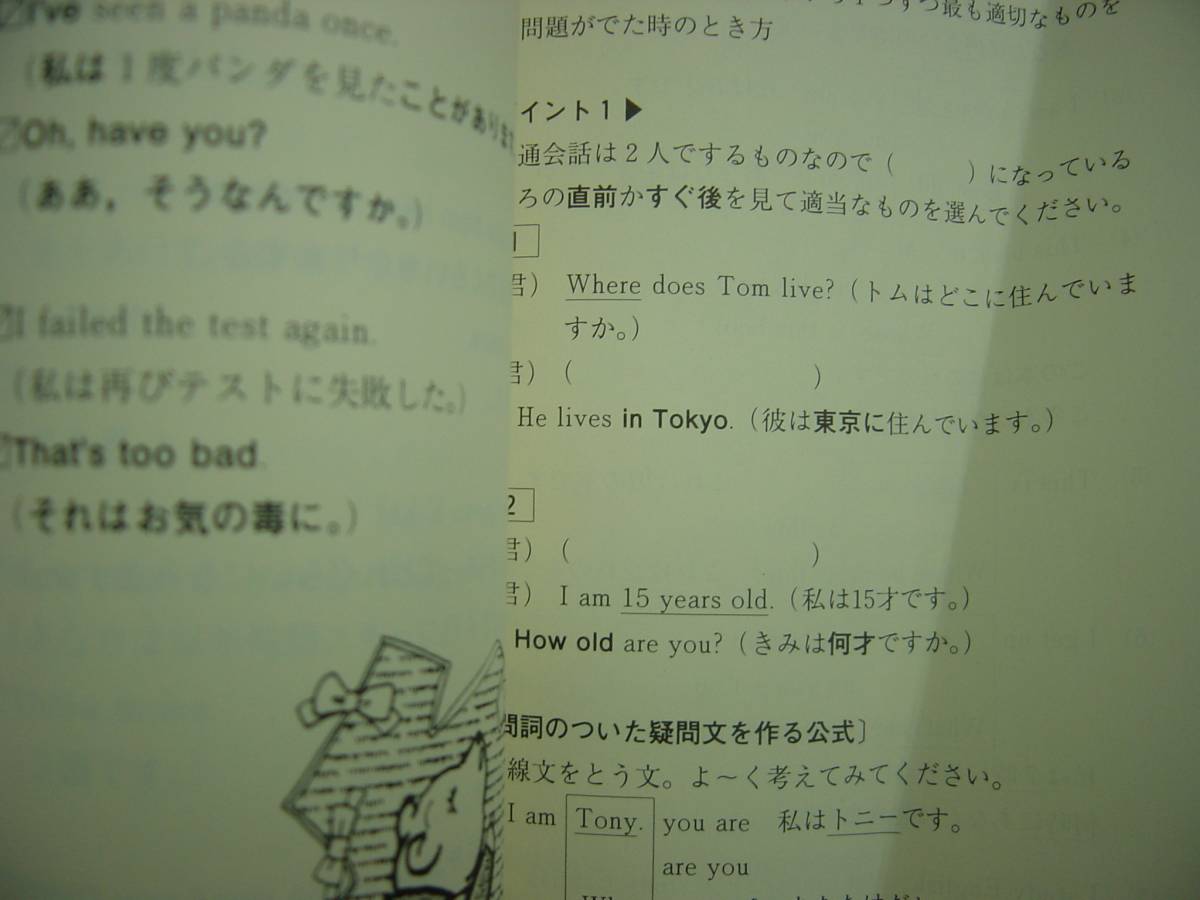 I've seen a panda once.
(私は1度パンダを見たことがありま
Oh, have you?
(ああ，そうなんですか。)
I failed the test again.
(私は再びテストに失敗した。)
That's too bad.
(それはお気の毒に。)
1つずつ最も適切なものを
問題がでた時のとき方
イント1▶
通会話は2人でするものなので(　　)になっている
ろの直前かすぐ後を見て適当なものを選んでください。
1
君) Where does Tom live? (トムはどこに住んでいま
すか。)
君) (　　　　　)
He lives in Tokyo. (彼は東京に住んでいます。)
2
君) (　　　　　)
君) I am 15 years old. (私は15才です。)
How old are you? (きみは何才ですか。)
問詞のついた疑問文を作る公式〕
線文をとう文。よ〜く考えてみてください。
I am Tony. you are 私はトニーです。
are you